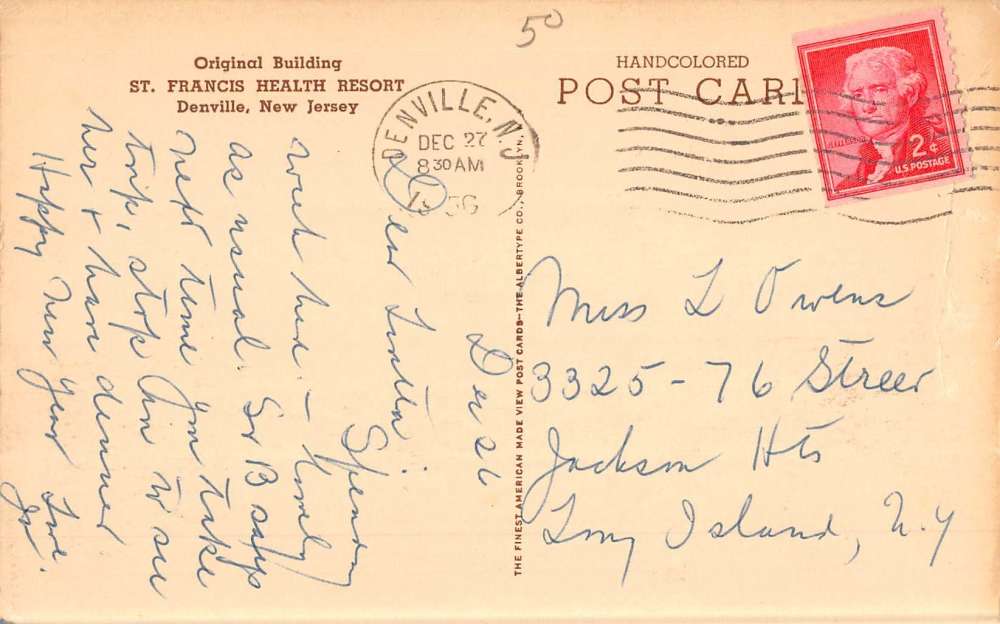 50
Original Building
ST. FRANCIS HEALTH RESORT
Denville, New Jersey
HANDCOLORED
POST CAR
DENVILLE, N.J.
DEC 27
8 30 AM
1956
2¢
U.S. POSTAGE
THE FINEST AMERICAN MADE VIEW POST CARDS—THE ALBERTYPE CO., BROOKLYN,
Dec 26
Dear
Spending
week here - lovely
as usual. Sr B says
next time you take
trip, stop in to see
her & have dinner
Happy New Year Love
Miss L Owens
3325 - 76 Street
Jackson Hts
Long Island, N.Y